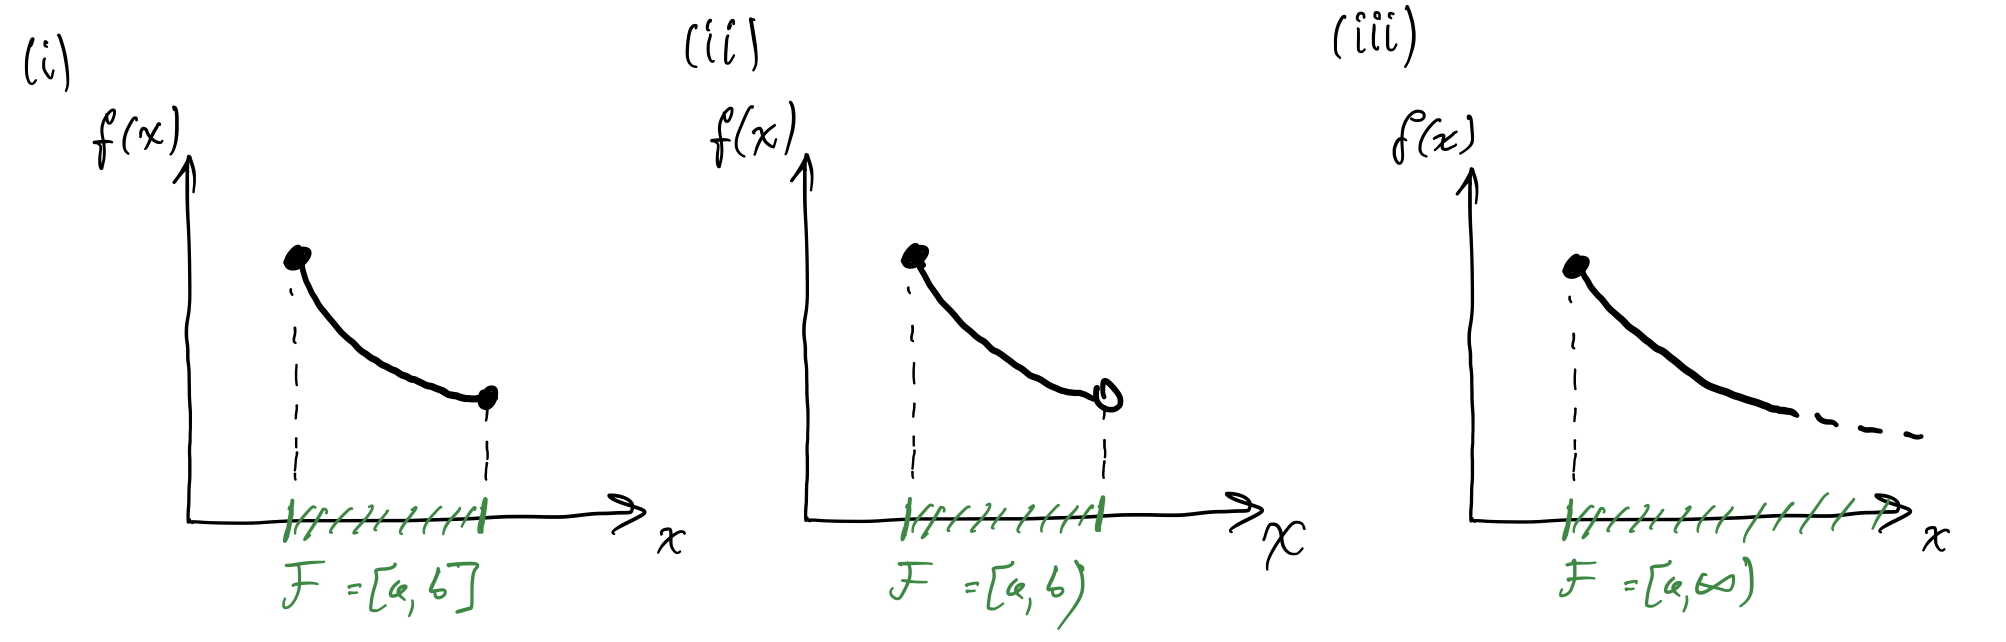 (i)
f(x)
x
F = [a, b]
(ii)
f(x)
x
F = [a, b)
(iii)
f(x)
x
F = [a, ∞)